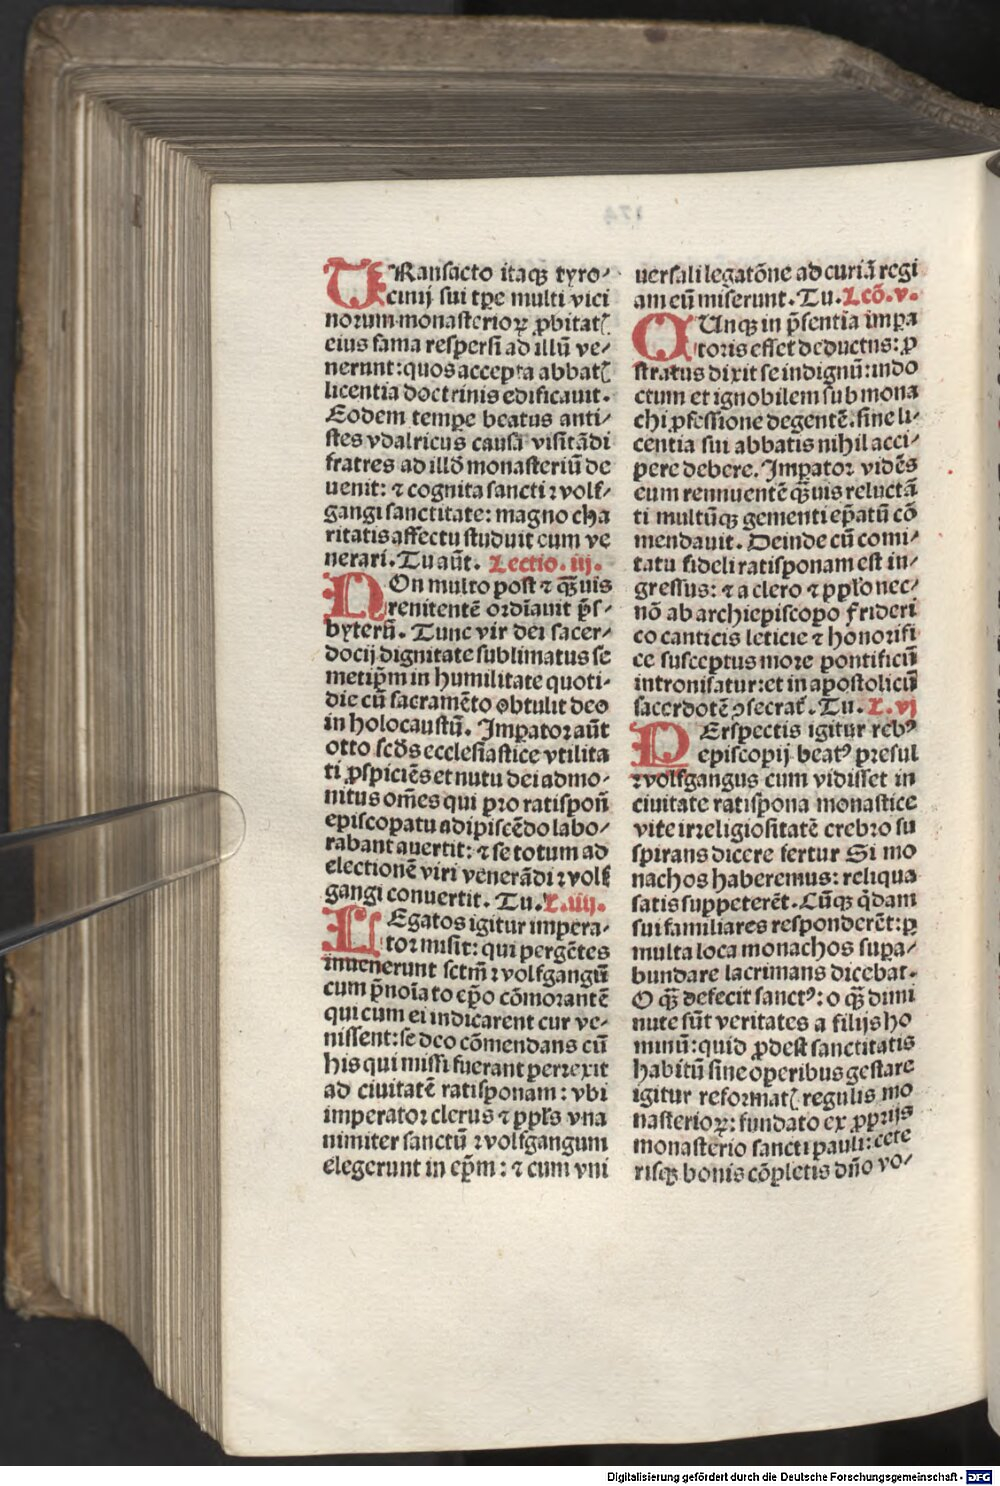 TRansacto itaqꝫ tyro⸗
cinij sui tꝑe multi vici
norum monasterioꝝ ꝓbitatꝭ
eius fama respersi ad illū ve⸗
nerunt: quos accepta abbatꝭ
licentia doctrinis edificauit.
Eodem tempꝛe beatus anti⸗
stes vdalricus causā visitādi
fratres ad illd̄ monasteriū de
uenit: ⁊ cognita sancti ꝛvolf⸗
gangi sanctitate: magno cha
ritatis affectu studuit eum ve
nerari. Tu aūt. Lectio. iij.
NOn multo post ⁊ qꝫ̄uis
renitentē ordīauit p̄s⸗
byterū. Tunc vir dei sacer⸗
docij dignitate sublimatus se
metip̄m in humilitate quoti⸗
die cū sacramēto obtulit deo
in holocaustū. Imꝑator aūt
otto scd̄s ecclesiastice vtilita
ti ꝓspiciēs et nutu dei admo⸗
nitus om̄es qui pro ratispoñ
episcopatu adipiscēdo labo⸗
rabant auertit: ⁊ se totum ad
electionē viri venerādi ꝛvolf
gangi conuertit. Tu. L. iiij.
LEgatos igitur impera⸗
tor misit: qui pergētes
inuenerunt sctm̄ ꝛvolfgangū
cum p̄noīato ep̄o cōmorantē
qui cum ei indicarent cur ve⸗
nissent: se deo cōmendans cū
his qui missi fuerant perrexit
ad ciuitatē ratisponam: vbi
imperator clerus ⁊ ppl̄s vna
nimiter sanctū ꝛvolfgangum
elegerunt in ep̄m: ⁊ cum vni
uersali legatōne ad curiā regi
am eū miserunt. Tu. Lcō. v.
QUnqꝫ in p̄sentia imꝑa
toris esset deductus: ꝓ
stratus dixit se indignū: indo
ctum et ignobilem sub mona
chi ꝓfessione degentē. sine li⸗
centia sui abbatis nihil acci⸗
pere debere. Imꝑator vidēs
eum rennuentē qꝫ̄uis reluctā
ti multūqꝫ gementi ep̄atū cō
mendauit. Deinde cū comi⸗
tatu fideli ratisponam est in⸗
gressus: ⁊ a clero ⁊ ppl̄o nec⸗
nō ab archiepiscopo frideri
co canticis leticie ⁊ honorifi
ce susceptus more pontificū
intronisatur: et in apostolicū
sacerdotē ꝯsecrat̄. Tu. L. vj
PErspectis igitur rebꝰ
episcopij beatꝰ presul
ꝛvolfgangus cum vidisset in
ciuitate ratispona monastice
vite irreligiositatē crebro su
spirans dicere fertur Si mo
nachos haberemus: reliqua
satis suppeterēt. Cūqꝫ qͥdam
sui familiares responderēt: ꝑ
multa loca monachos supa⸗
bundare lacrimans dicebat.
O qꝫ̄ defecit sanctꝰ: o qꝫ̄ dimi
nute sūt veritates a filijs ho
minū: quid ꝓdest sanctitatis
habitū sine operibus gestare
igitur reformatꝭ regulis mo
nasterioꝝ: fundato ex ꝓprijs
monasterio sancti pauli: cete
risqꝫ bonis cōpletis dn̄o vo⸗
Digitalisierung gefördert durch die Deutsche Forschungsgemeinschaft - DFG